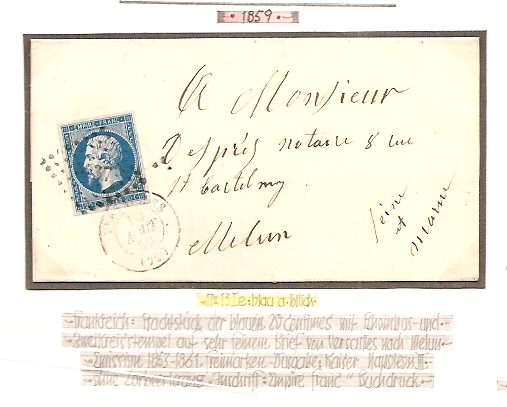 1859
A Monsieur
Després notaire 8 rue
St Bartelmy
Melun
Seine
et
Marne
EMPIRE FRANC
No 13 Ie: blau a. bläul.
Frankreich: Prachtstück der blauen 20 Centimes mit Rhombus- und
Zweikreisstempel auf sehr feinem Brief von Versailles nach Melun
Emission 1853-1861. Freimarken-Ausgabe: Kaiser Napoleon III
ohne Lorbeerkranz Inschrift "Empire franc" Buchdruck